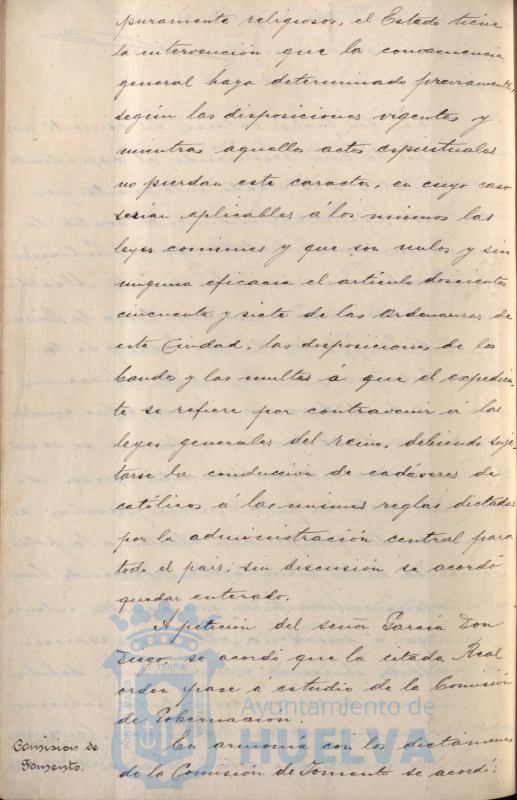 puramente religiosos, el Estado tiene
la intervención que la conveniencia
general haya determinado previamente,
según las disposiciones vigentes y
mientras aquellos actos espirituales
no pierdan este caracter, en cuyo caso
serian aplicables á los mismos las
leyes comunes y que son nulos y sin
ninguna eficacia el artículo doscientos
cincuenta y siete de las Ordenanzas de
esta Ciudad, las disposiciones de los
bandos y las multas á que el expedien-
te se refiere por contravenir á las
leyes generales del reino, debiendo suje-
tarse la conducción de cadáveres de
católicos á las mismas reglas dictadas
por la administración central para
todo el pais; sin discusión se acordó
quedar enterado.
A petición del señor Garcia Don
Diego, se acordó que la citada Real
orden pase a estudio de la Comisión
de Gobernacion.
Comision de
Fomento.
En armonia con los dictámenes
de la Comisión de Fomento se acordó:
Ayuntamiento de
HUELVA